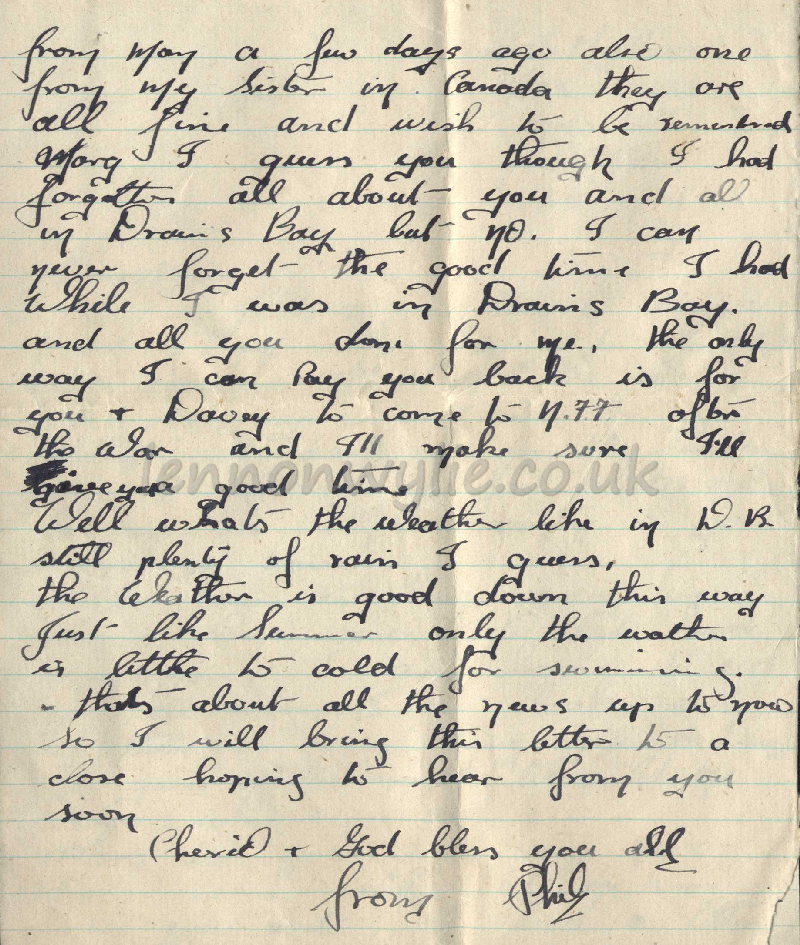 from May a few days ago also one
from my Sister in Canada they are
all fine and wish to be remembered
Marg I guess you though I had
forgotten all about you and all
in Drains Bay but no. I can
never forget the good time I had
While I was in Drains Bay.
and all you done for me, the only
way I can Pay you back is for
you + Davey to come to N.F.F after
the War and I'll make sure I'll
give you a good time
Well whats the weather like in D.B.
still plenty of rain I guess,
the Weather is good down this way
Just like Summer only the wather
is little to cold for swimming.
- thats about all the news up to now
so I will bring this letter to a
close hoping to hear from you
soon
Cherio + God bless you all
from Phil
lennonwylie.co.uk